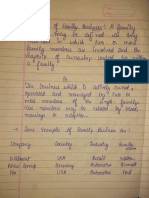 of Family Business: A family
may be defined as any
in which two or more
family members are involved and the
majority of ownership control lies within
a family
Or
The business which is actively owned,
operated and managed by two or
more members of the single family.
members may be related by blood,
marriage or adoption.
Some Examples of Family Business are:
Company Country Industry Family
Wallmart USA Retail Walton
Group Germany Automotive
Ford USA Automotive Ford